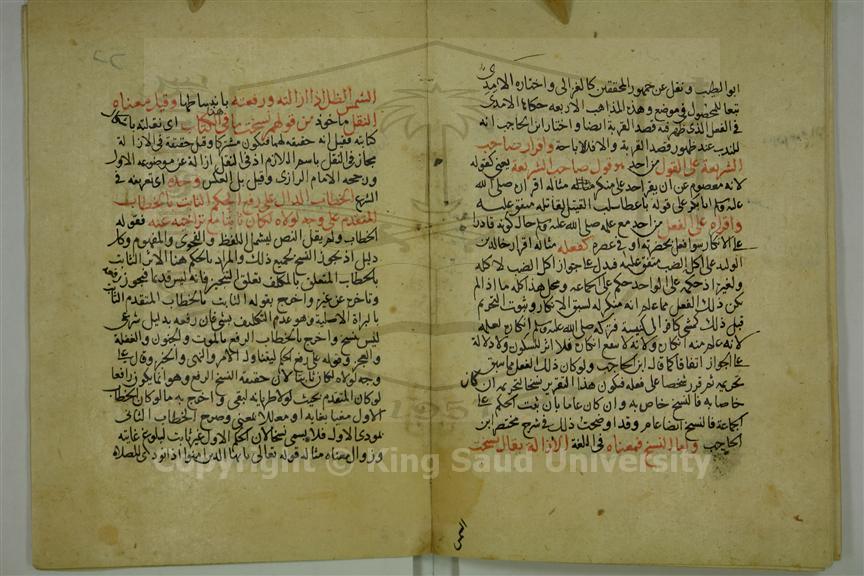 ابو الطيب ونقل عن جمهور المحققين كالغزالى واختاره الامدى
تبعا للمحصول فى موضع وهذه المذاهب الاربعة حكاها الامدى
فى الفعل الذى ظهر فيه قصد القربة ايضا واختار ابن الحاجب انه
للندب عند ظهور قصد القربة والا فللاباحة واقرار صاحب
الشريعة على القول من احد هو قول صاحب الشريعة يعنى كقوله
لانه معصوم عن ان يقر احدا على منكر مثاله اقراره صلى الله
عليه وسلم ابا بكر على قوله باعطا سلب القتيل لقاتله متفق عليه
واقراره على الفعل من احد مع علمه صلى الله عليه وسلم حال كونه قادرا
على الانكار سوا فعل بحضرته او فى عصره كفعله مثاله اقراره خالد بن
الوليد على اكل الضب متفق عليه فدل على جواز اكل الضب لاكله
ولغيره اذ حكمه على الواحد حكمه على الجماعة ومحل هذا كله ما اذا لم
يكن ذلك الفعل مما علم انه منكر له لسبق الانكار وثبوت التحريم
قبل ذلك كمضى كافر الى كنيسة فتركه صلى الله عليه وسلم انكاره لعلمه
لانه علم منه انكاره ولانه لا ينفع انكاره فلا اثر للسكون ولا دلالة
على الجواز اتفاقا كما قاله ابن الحاجب ولو كان ذلك الفعل مما سبق
تحريمه ثم قرر شخصا على فعله فيكون هذا التقرير نسخا لتحريمه ان كان
خاصا به فالنسخ خاص به وان كان عاما بان ثبت الحكم على
الجماعة فالنسخ ايضا عام وقد اوضحت ذلك فى شرح مختصر ابن
الحاجب واما النسخ فمعناه فى اللغة الازالة يقال نسخت
الشمس
الشمس الظل اذا ازالته ورفعته بانبساطها وقيل معناه
النقل ماخوذ من قولهم نسخت ما فى هذا الكتاب اى نقلته باشكال
كتابته فقيل انه حقيقة فيهما فيكون مشتركا وقيل حقيقة فى الازالة
مجاز فى النقل باسم اللازم اذ فى النقل ازالة عن موضوعه الاول
ورجحه الامام الرازى وقيل بل العكس وحده اى تعريفه فى
الشرع الخطاب الدال على رفع الحكم الثابت بالخطاب
المتقدم على وجه لولاه لكان ثابتا مع تراخيه عنه فقوله
الخطاب ولم يقل النص ليشمل اللفظ والفحوى والمفهوم وكل
دليل اذ يجوز النسخ بجميع ذلك والمراد بالحكم هنا الاثر الثابت
بالخطاب المتعلق بالمكلف تعلق التنجيز فانه ليس قديما فيجوز رفعه
وتاخره عن غيره واخرج بقوله الثابت بالخطاب المتقدم الثابت
بالبراة الاصلية وهو عدم التكليف بشى فان رفعه بدليل شرعى
ليس بنسخ واخرج بالخطاب الرفع بالموت والجنون والغفلة
والعجز وقوله على رفع الحكم ليتناول الامر والنهى والخبر وقال على
وجه لولاه لكان ثابتا لان حقيقة النسخ الرفع وهو انما يكون رافعا
لو كان المتقدم بحيث لولا طريانه لبقى واخرج به ما لو كان الخطاب
الاول مغيا بغاية او معللا بمعنى وصرح الخطاب الثانى
بمودى الاول فلا يسمى نسخا لان الحكم الاول غير ثابت لبلوغ غايته
وزوال معناه مثاله قوله تعالى يا ايها الذين امنوا اذا نودى للصلاه
Copyright © King Saud University
1957